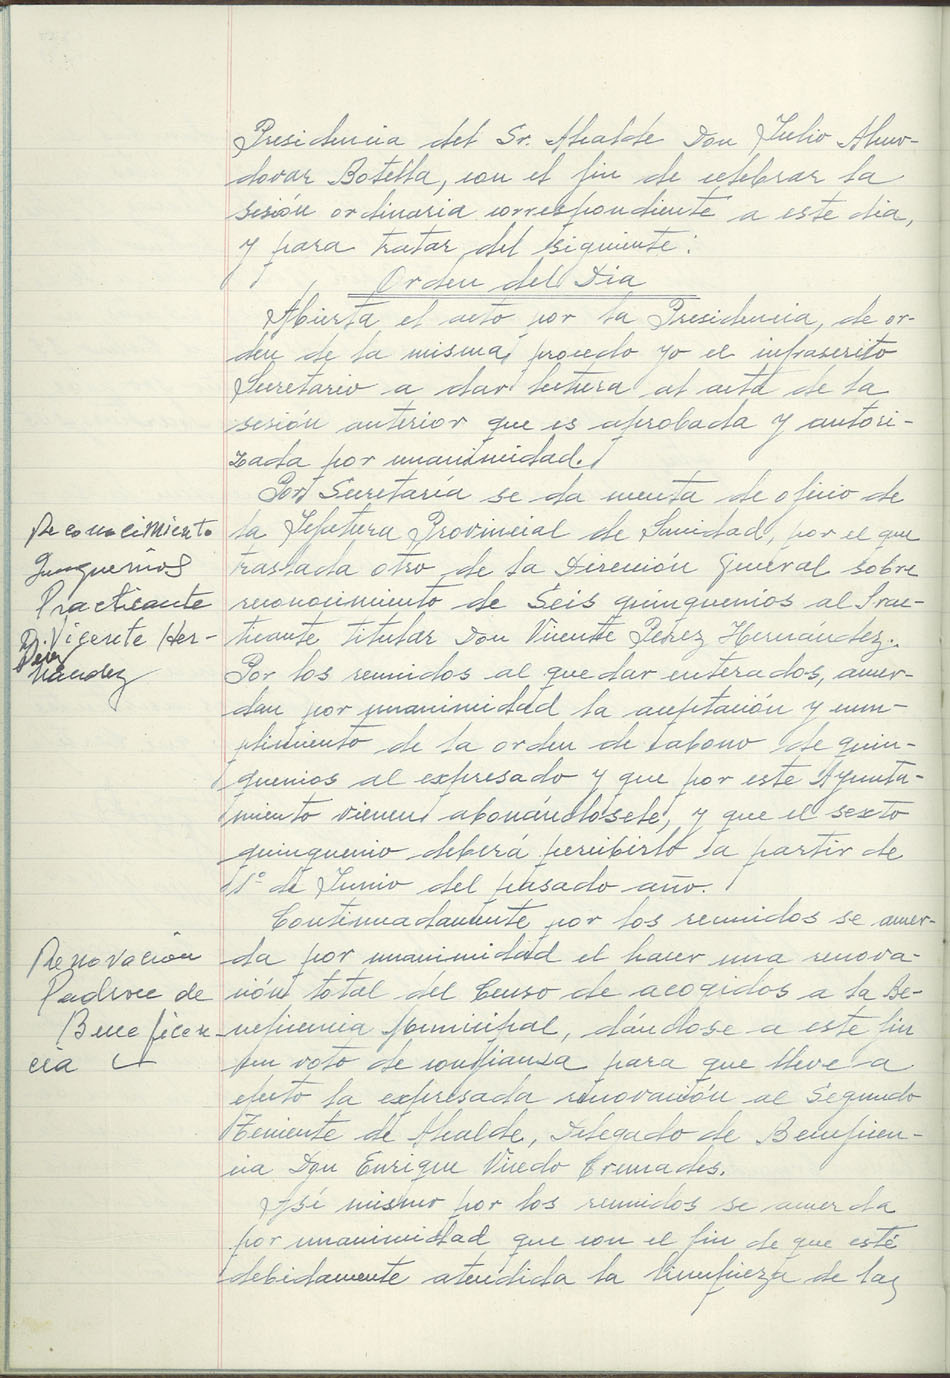 Presidencia del Sr. Alcalde Don Julio Almo-
dovar Botella, con el fin de celebrar la
sesión ordinaria correspondiente a este dia,
y para tratar del siguiente:
Orden del Dia
Abierta el acto por la Presidencia, de or-
den de la misma, procedo yo el infrascrito
Secretario a dar lectura al acta de la
sesión anterior que es aprobada y autori-
zada por unanimidad.
Por Secretaría se da cuenta de oficio de
Reconocimiento
la Jefatura Provincial de Sanidad, por el que
Quinquenios
traslada otro de la Dirección General sobre
Practicante
reconocimiento de Seis quinquenios al Prac-
D. Vicente Her-
Pérez
nández
ticante titular Don Vicente Pérez Hernández.
Por los reunidos al quedar enterados, acuer-
dan por unanimidad la aceptación y cum-
plimiento de la orden de abono de quin-
quenios al expresado y que por este Ayunta-
miento vienen abonándosele, y que el sexto
quinquenio deberá percibirlo a partir de
1º de Junio del pasado año.
Continuadamente por los reunidos se acuer-
Renovación
da por unanimidad el hacer una renova-
Padron de
ción total del Censo de acogidos a la Be-
Beneficen-
neficencia Municipal, dándose a este fin
cia
un voto de confianza para que lleve a
efecto la expresada renovación al Segundo
Teniente de Alcalde, Delegado de Beneficen-
cia Don Enrique Vicedo Cremades.
Así mismo por los reunidos se acuerda
por unanimidad que con el fin de que esté
debidamente atendida la limpieza de las